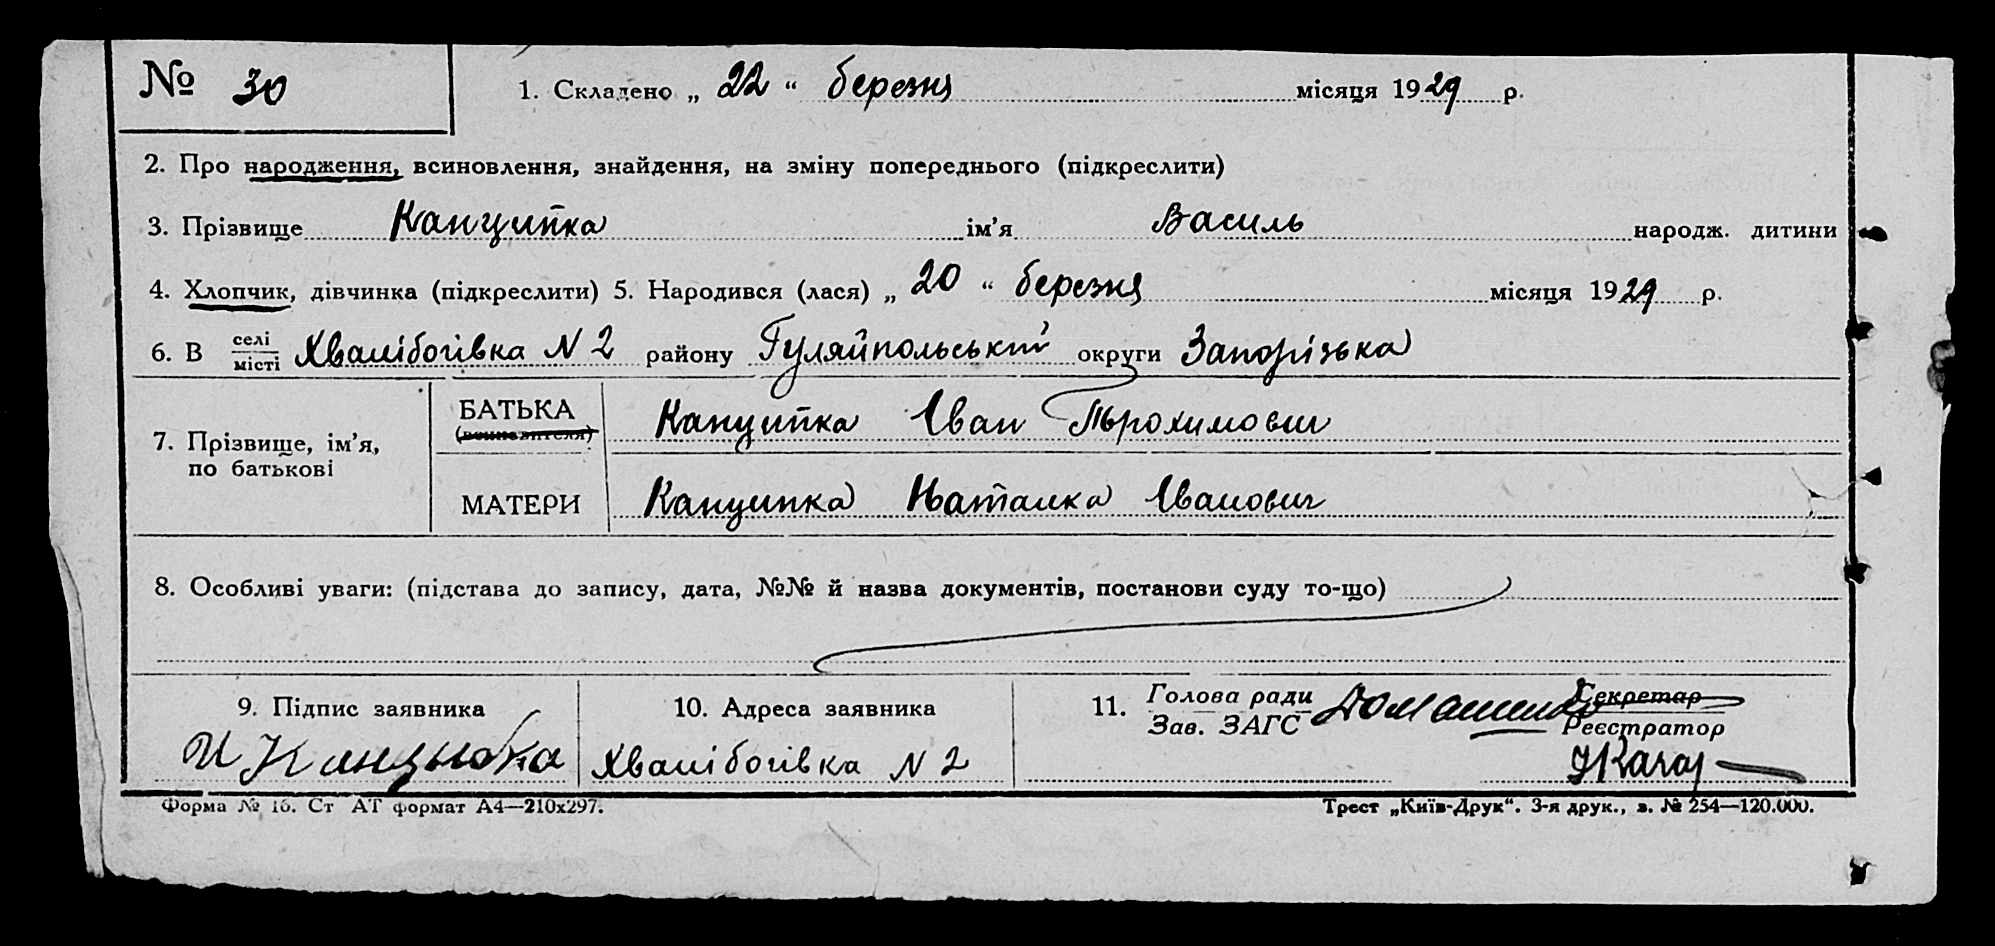 № 30
1. Складено „ 22 “ березня місяця 1929 р.
2. Про народження, всиновлення, знайдення, на зміну попереднього (підкреслити)
3. Прізвище Канципка ім’я Василь народж. дитини
4. Хлопчик, дівчинка (підкреслити) 5. Народився (лася) „ 20 “ березня місяця 1929 р.
6. В селі місті Хвалібогівка N 2 району Гуляйпольський округи Запорізька
7. Прізвище, ім’я, по батькові
БАТЬКА (всиновителя) Канципка Іван Трохимович
МАТЕРИ Канципка Наталка Іванович
8. Особливі уваги: (підстава до запису, дата, №№ й назва документів, постанови суду то-що)
9. Підпис заявника
10. Адреса заявника
Хвалібогівка N 2
11. Голова ради Зав. ЗАГС
Секретар Реєстратор
Форма № 16. Ст АТ формат А4—210х297.
Трест „Київ-Друк“. 3-я друк., з. № 254—120.000.